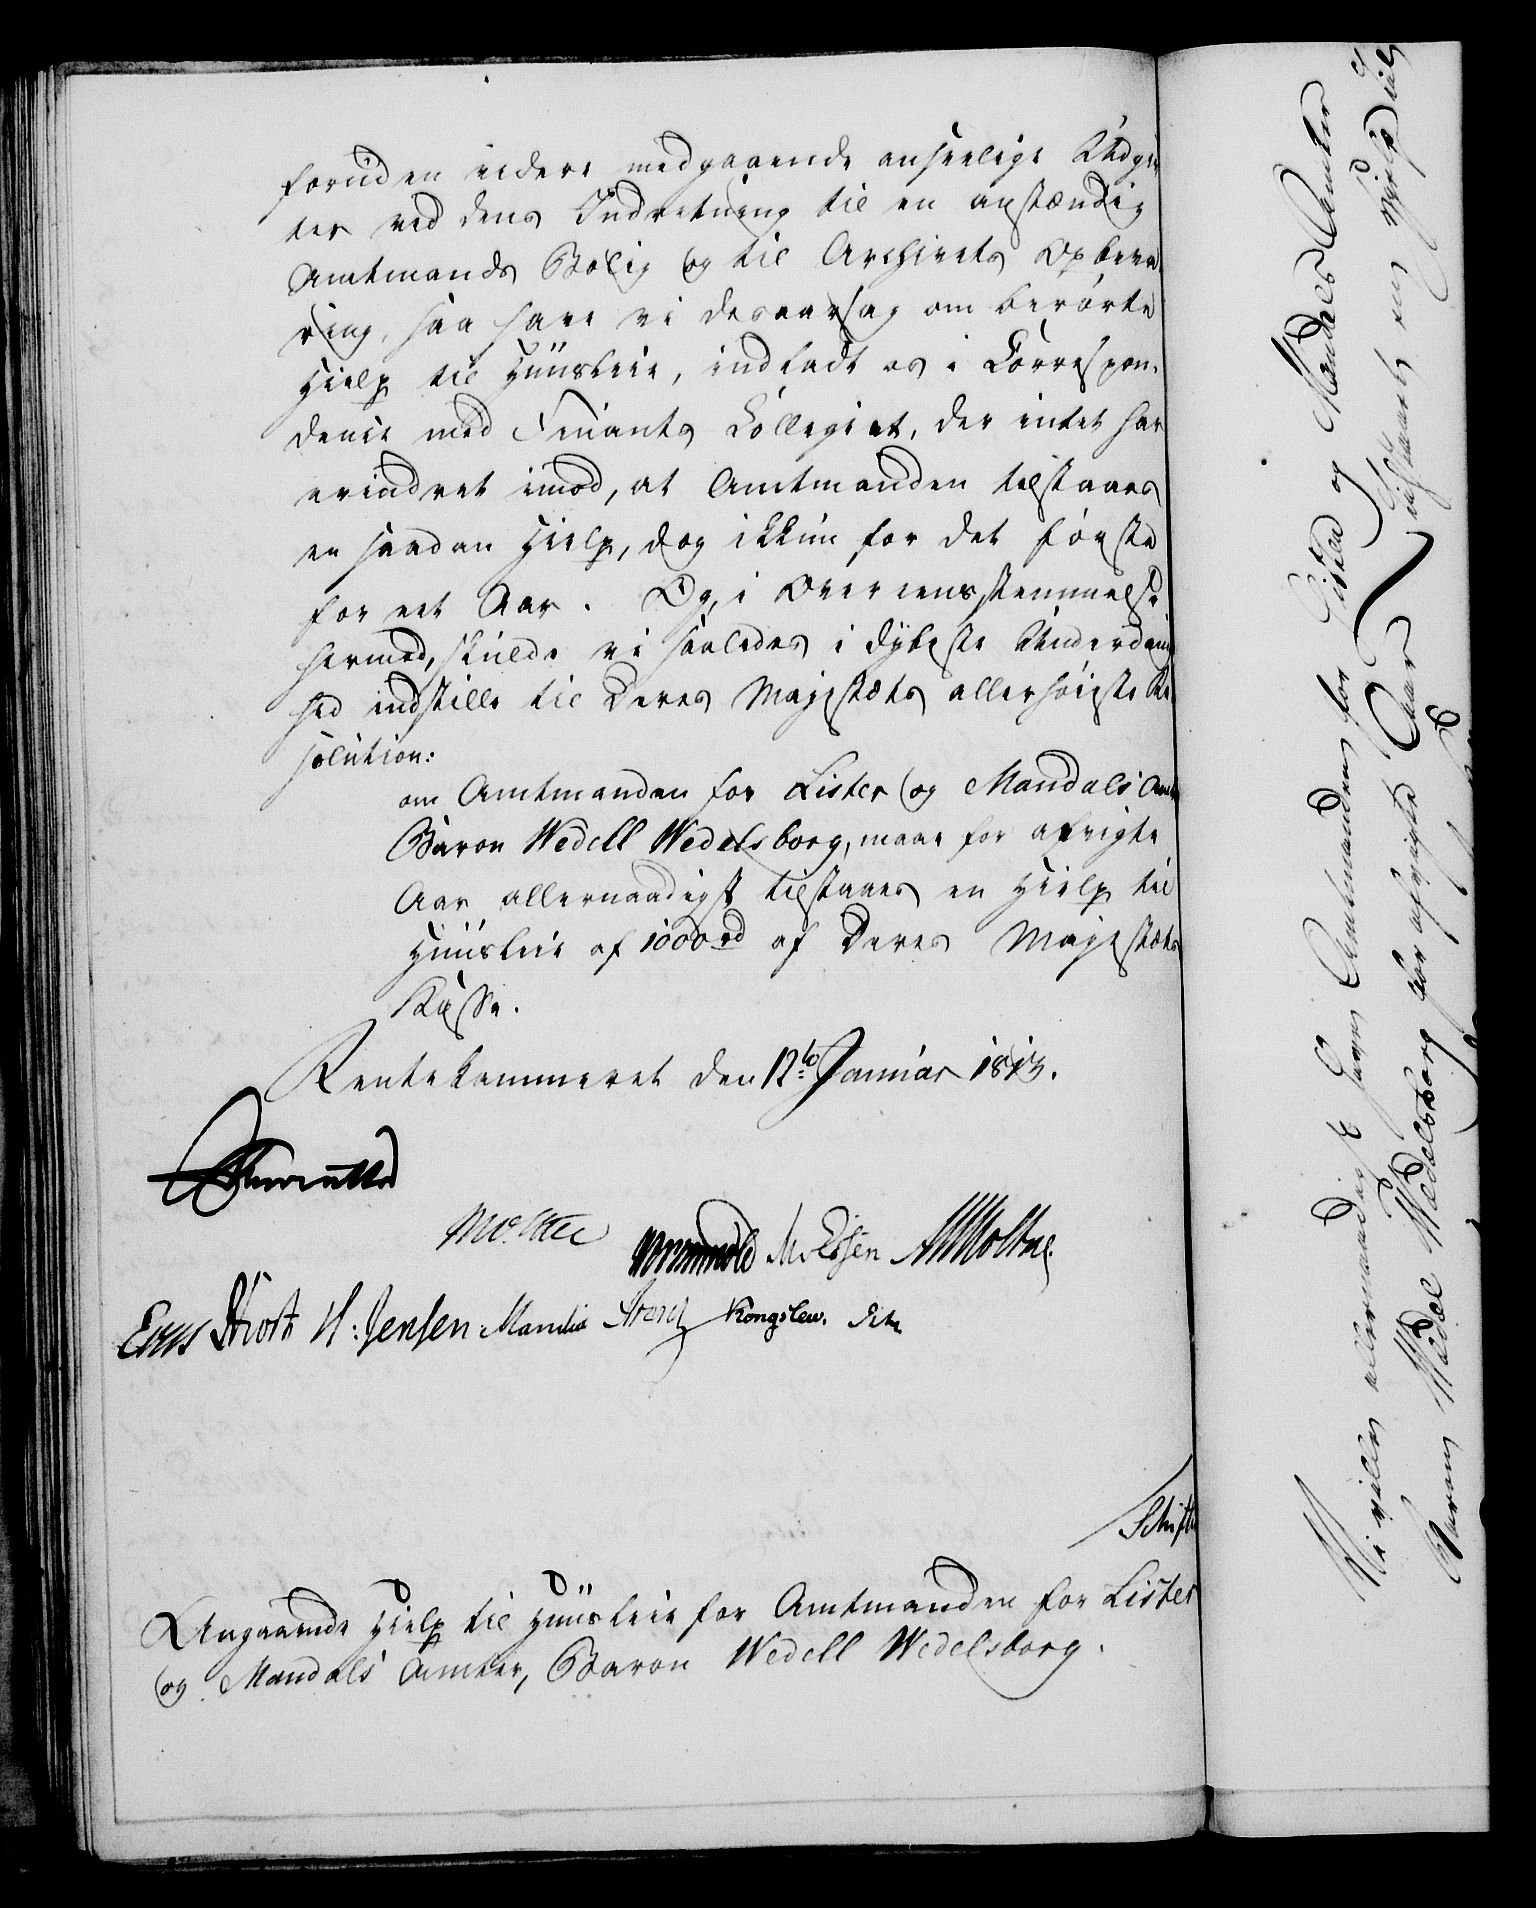 foruden videre medgaaende anseelige Udgif
ter ved dens Indretning til en anstændig
Amtmands Bolig og til Archivets Opbeva
ring, saa have vi desaarsag om berørte
Hielp til Huusleie, indladt os i Correspon-
dence med Finants Collegiet, der intet har
erindret imod, at Amtmanden tilstaaes
en saadan Hielp, dog ikkun for det første
for eet Aar. Og, i Overeensstemmelse
hermed, skulde vi saaledes i dybeste Underdanig
hed indstille til Deres Majestæts allerhøieste Re
solution:
om Amtmanden for Lister og Mandals Amt
Baron Wedell Wedelsborg, maae for afvigte
Aar allernaadigst tilstaaes en Hielp til
Huusleie af 1000 rd af Deres Majestæts
Kasse.
Rentekammeret den 12te Januar 1813.
Moltke
MEssen AWMoltke.
Hvoth H: Jensen. Kongslew.
Schifter
Angaaende Hielp til Huusleie for Amtmanden for Lister
og Mandals Amter, Baron Wedell Wedelsborg.
Vi ville allernaadigst have Amtmanden for Lister og Mandals Amter
Baron Wedel Wedelsborg for afvigte Aar tilstaaet en Hjelp til